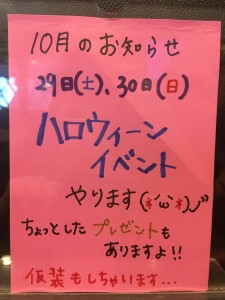 10月のお知らせ
29日(土)、30日(日)
ハロウィーン
イベント
やります(*´ω`*)ノ
ちょっとしたプレゼントも
ありますよ!!
仮装もしちゃいます...